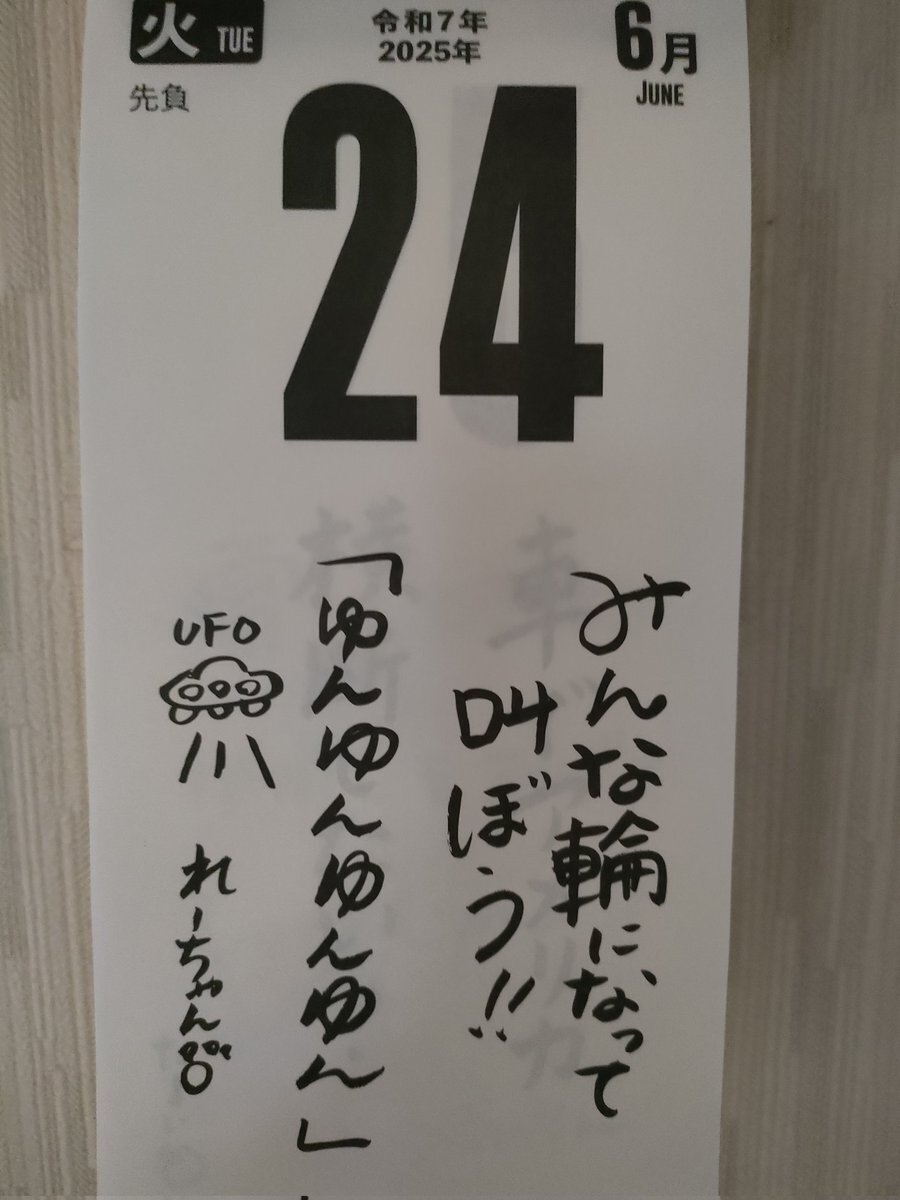 火 TUE
令和7年
2025年
6月
JUNE
先負
24
みんな輪になって
叫ぼう!!
「ゆんゆんゆんゆん」
UFO
れーちゃん